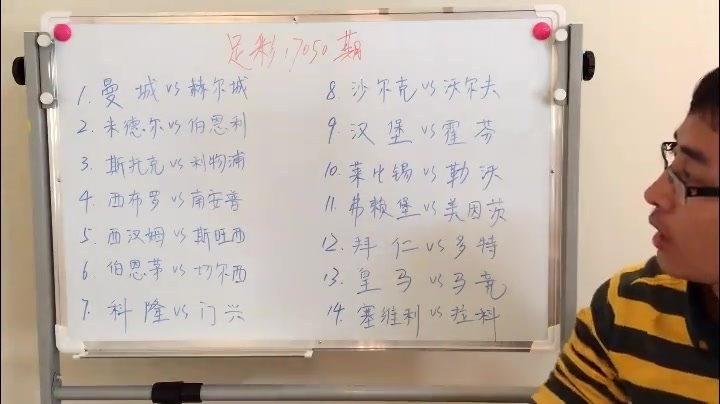 足彩17050期
1. 曼城vs赫尔城
2. 米德尔vs伯恩利
3. 斯托克vs利物浦
4. 西布罗vs南安普
5. 西汉姆vs斯旺西
6. 伯恩茅vs切尔西
7. 科隆vs门兴
8. 沙尔克vs沃尔夫
9. 汉堡vs霍芬
10. 莱比锡vs勒沃
11. 弗赖堡vs美因茨
12. 拜仁vs多特
13. 皇马vs马竞
14. 塞维利vs拉科